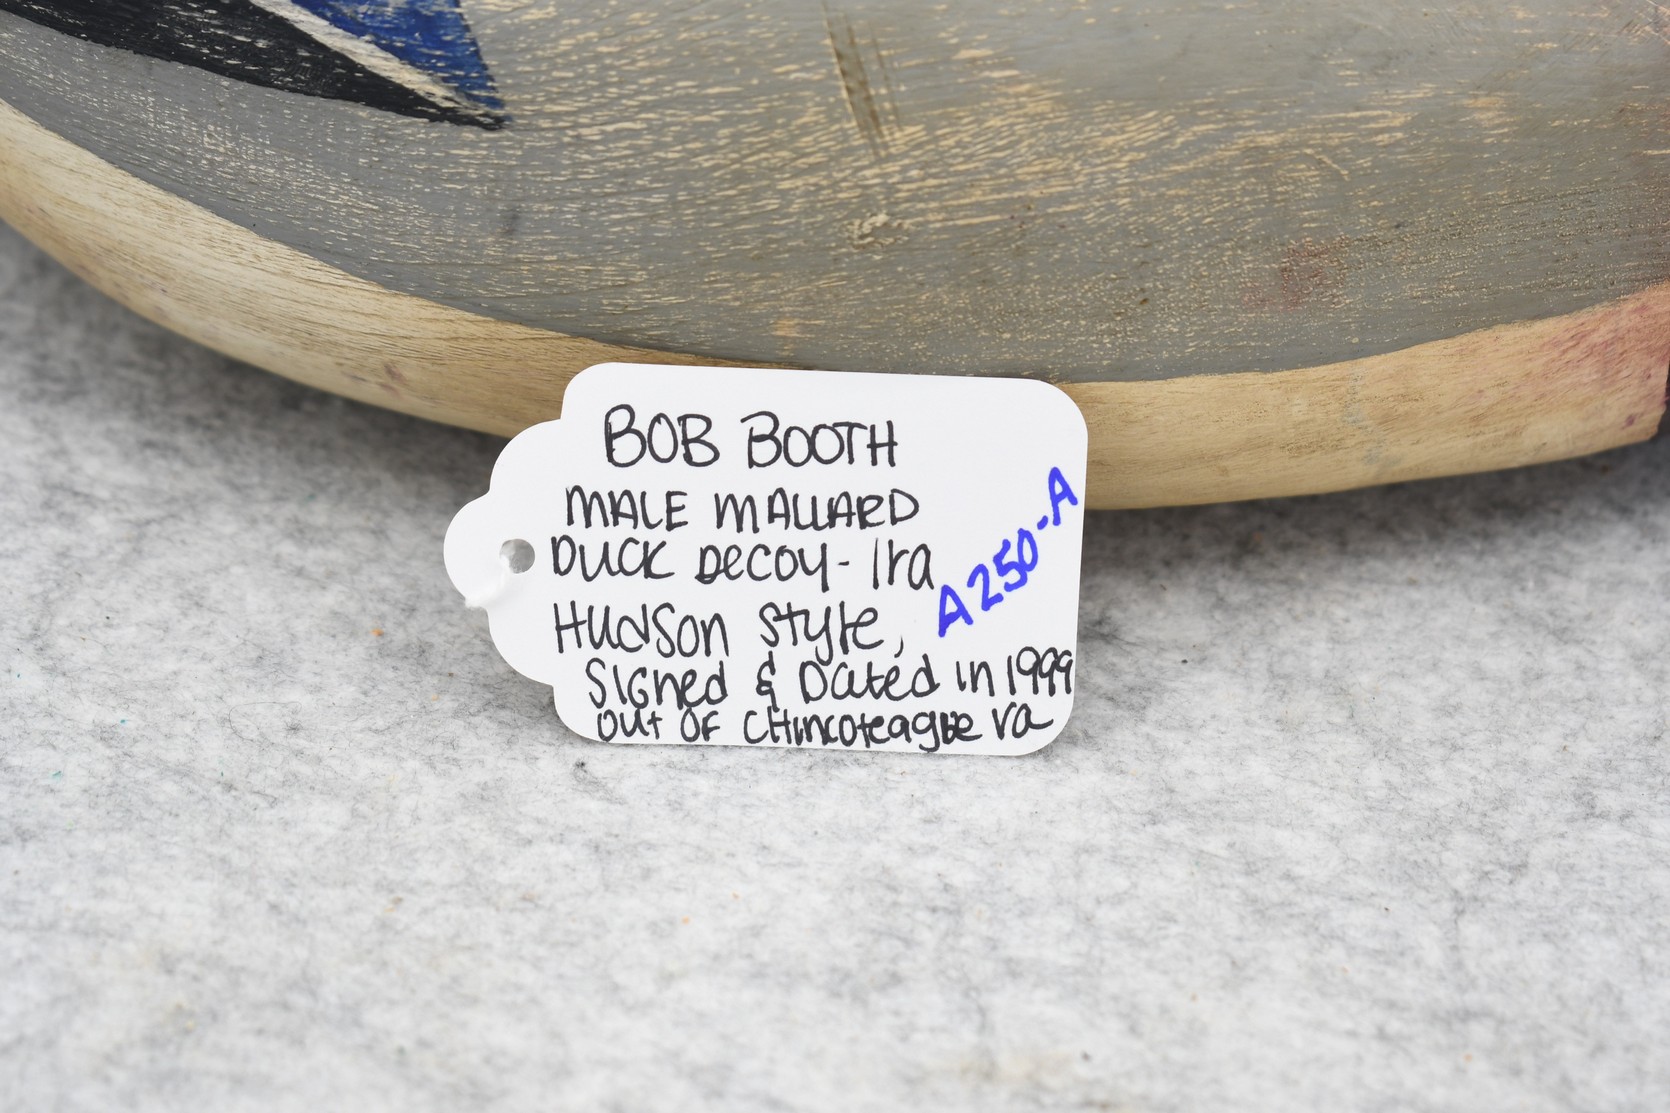 BOB BOOTH
MALE MALLARD
DUCK DECOY - Ira
Hudson Style,
A250-A
Signed & Dated in 1999
out of Chincoteague Va